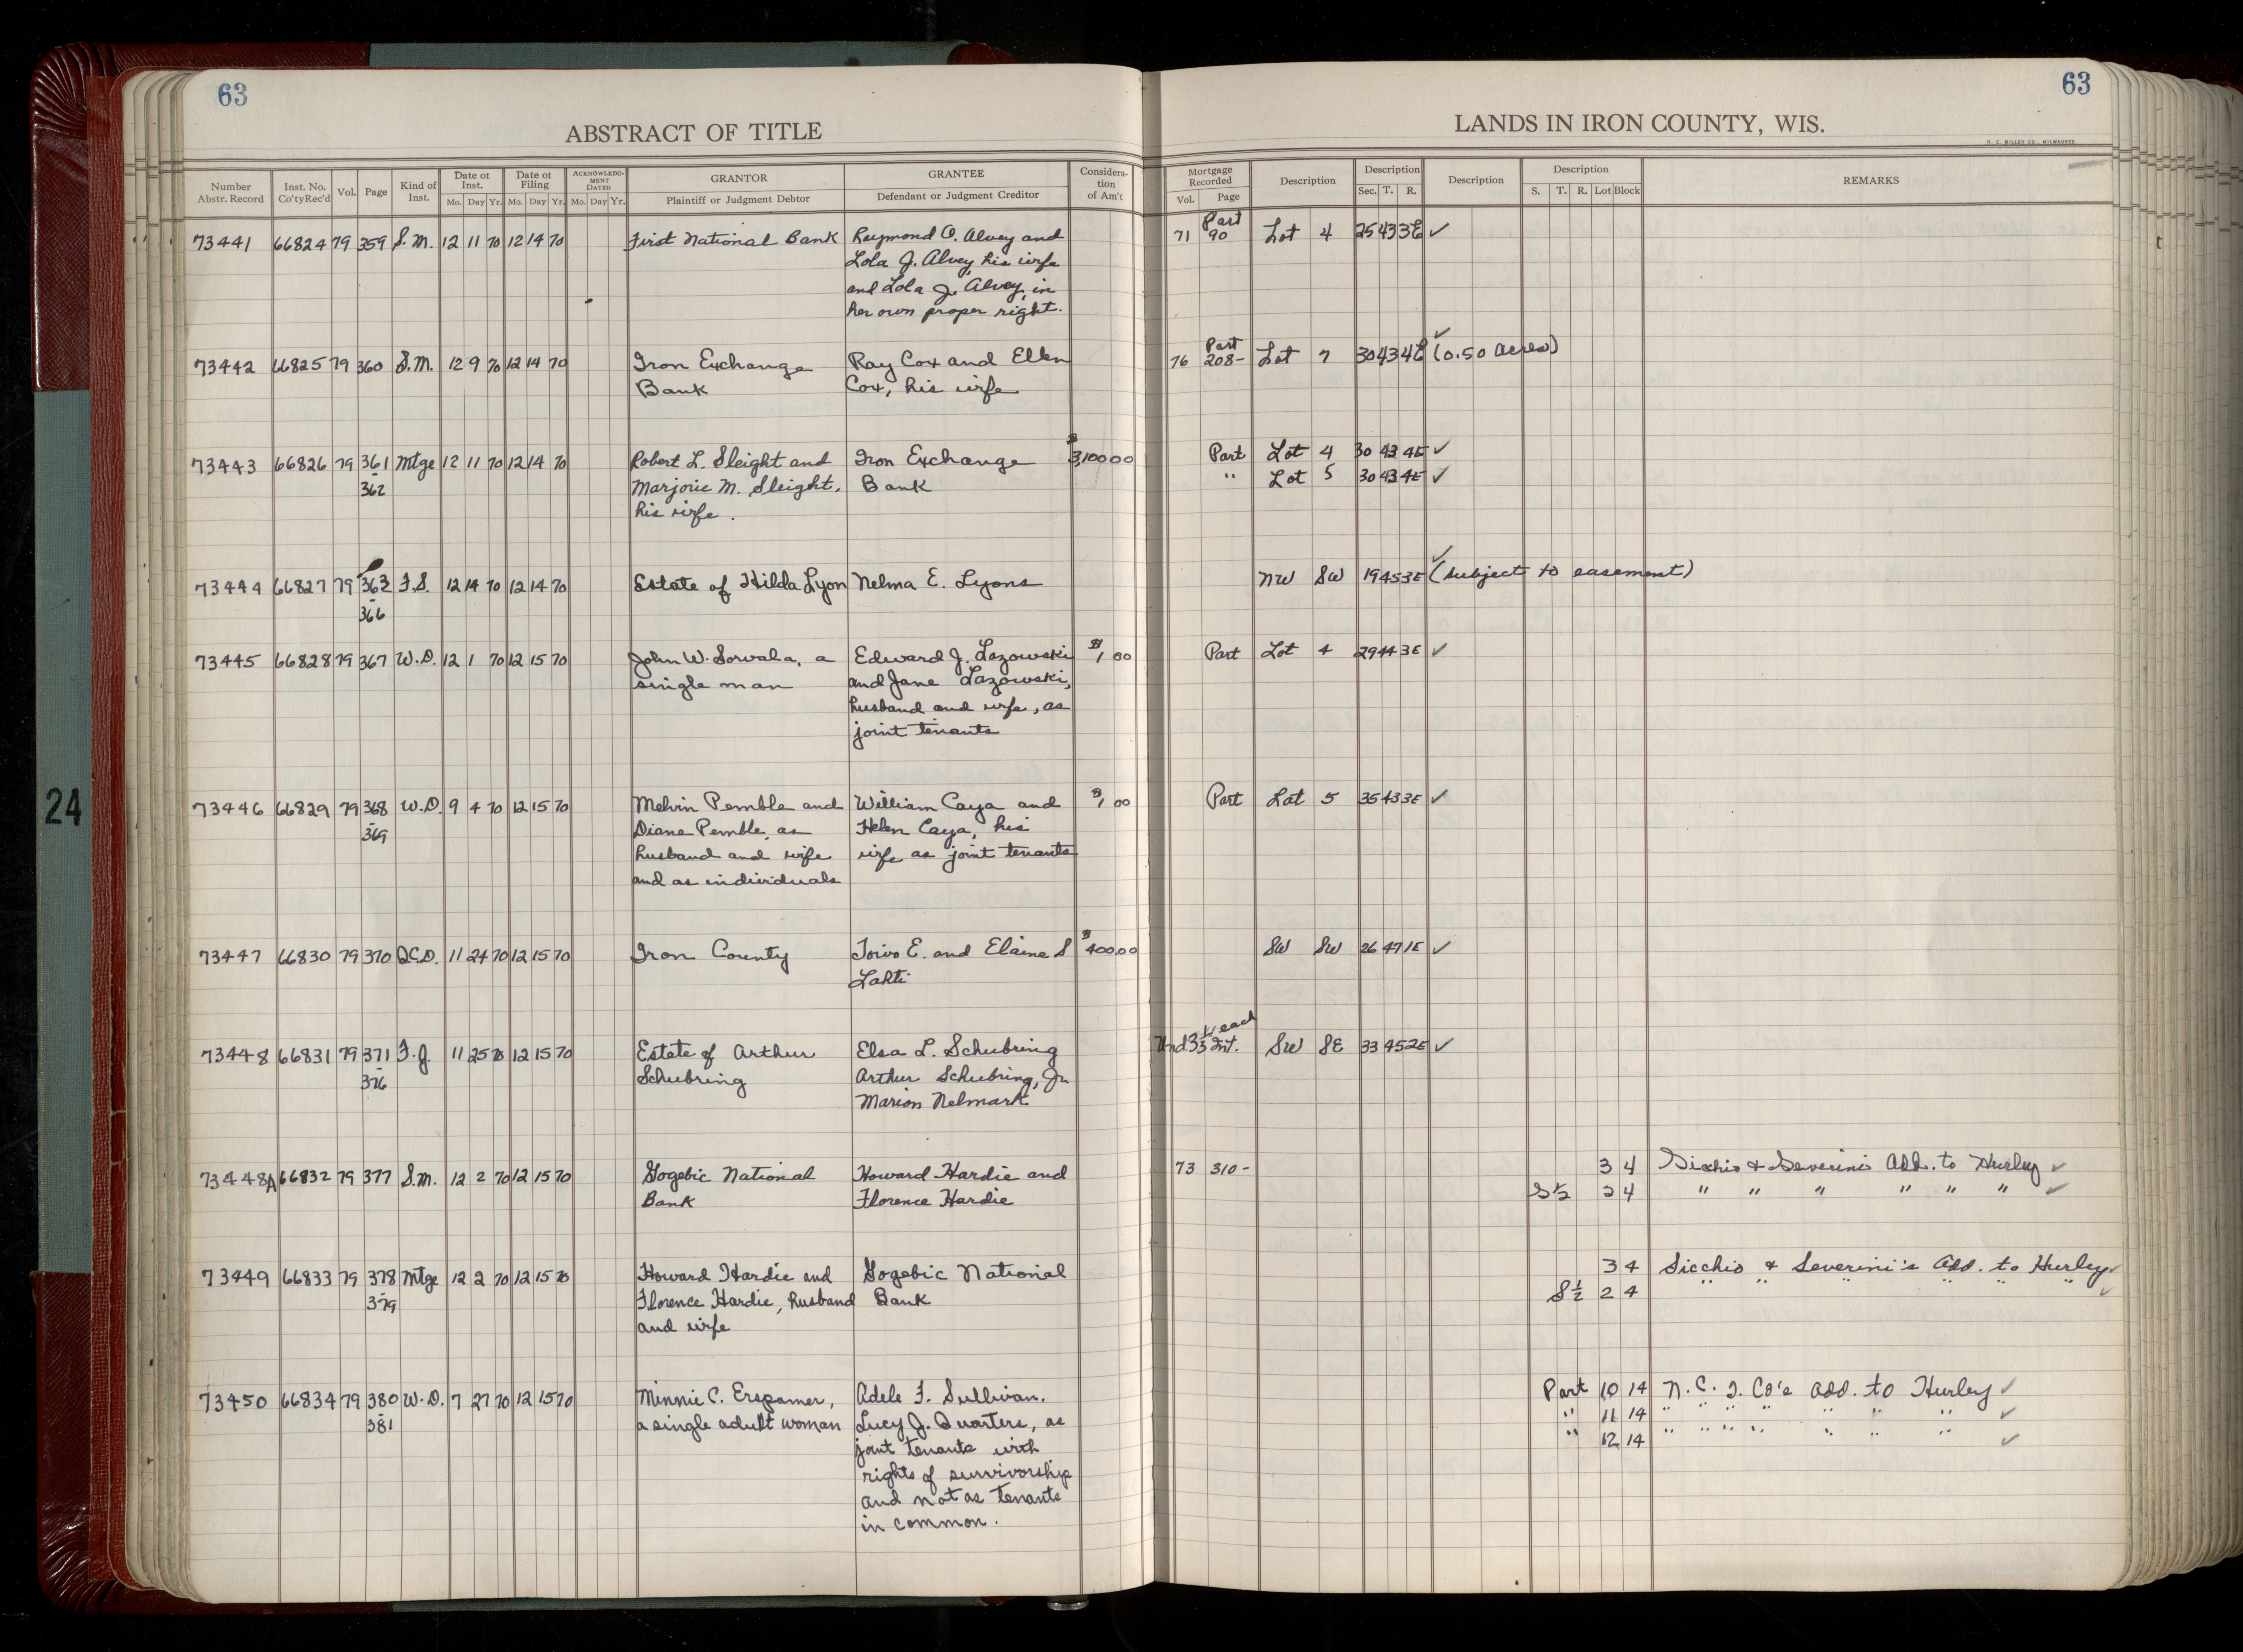 63
63
ABSTRACT OF TITLE
LANDS IN IRON COUNTY, WIS.
H. C. MILLER CO., MILWAUKEE
Number Abstr. Record Inst. No. Co'ty Rec'd Vol. Page Kind of Inst. Date of Inst. Mo. Day Yr. Date of Filing Mo. Day Yr. ACKNOWLEDGMENT DATED Mo. Day Yr. GRANTOR Plaintiff or Judgment Debtor GRANTEE Defendant or Judgment Creditor Consideration of Am't Mortgage Recorded Vol. Page Description Description Sec. T. R. Description Description S. T. R. Lot Block REMARKS
Part
73441 66824 79 359 S.M. 12 11 70 12 14 70 First National Bank Raymond O. Alvey and 71 90 Lot 4 25 43 3E ✓
Lola J. Alvey, his wife
and Lola J. Alvey, in
her own proper right.
Part
73442 66825 79 360 S.M. 12 9 70 12 14 70 Iron Exchange Ray Cox and Ellen 76 208- Lot 7 30 43 4E ✓ (0.50 acres)
Bank Cox, his wife
73443 66826 79 361 Mtge 12 11 70 12 14 70 Robert L. Sleight and Iron Exchange $3,100 00 Part Lot 4 30 43 4E ✓
- 362 Marjorie M. Sleight, Bank " Lot 5 30 43 4E ✓
his wife.
73444 66827 79 363 F.S. 12 14 70 12 14 70 Estate of Hilda Lyon Nelma E. Lyons NW SW 19 45 3E ✓ (subject to easement)
- 366
73445 66828 79 367 W.D. 12 1 70 12 15 70 John W. Sorvala, a Edward J. Lazowski $1 00 Part Lot 4 29 44 3E ✓
single man and Jane Lazowski,
husband and wife, as
joint tenants
73446 66829 79 368 W.D. 9 4 70 12 15 70 Melvin Pemble and William Caya and $1 00 Part Lot 5 35 43 3E ✓
- 369 Diane Pemble, as Helen Caya, his
husband and wife wife as joint tenants
and as individuals
73447 66830 79 370 Q.C.D. 11 24 70 12 15 70 Iron County Toivo E. and Elaine S $400 00 SW SW 26 47 1E ✓
Lahti
73448 66831 79 371 F.J. 11 25 70 12 15 70 Estate of Arthur Elsa L. Schubring Und 1/3 each Int. SW SE 33 45 2E ✓
- 376 Schubring Arthur Schubring, Jr.
Marion Nelmark
73448A 66832 79 377 S.M. 12 2 70 12 15 70 Gogebic National Howard Hardie and 73 310- 3 4 Sicchio & Severini's Add. to Hurley ✓
Bank Florence Hardie S½ 2 4 " " " " " " ✓
73449 66833 79 378 Mtge 12 2 70 12 15 70 Howard Hardie and Gogebic National 3 4 Sicchio & Severini's Add. to Hurley ✓
- 379 Florence Hardie, husband Bank S½ 2 4 " " " " " " ✓
and wife
73450 66834 79 380 W.D. 7 27 70 12 15 70 Minnie C. Erspamer, Adele F. Sullivan. Part 10 14 N. C. I. Co's Add. to Hurley ✓
- 381 a single adult woman Lucy J. Quarters, as " 11 14 " " " " " " " ✓
joint tenants with " 12 14 " " " " " " " ✓
rights of survivorship
and not as tenants
in common.
24